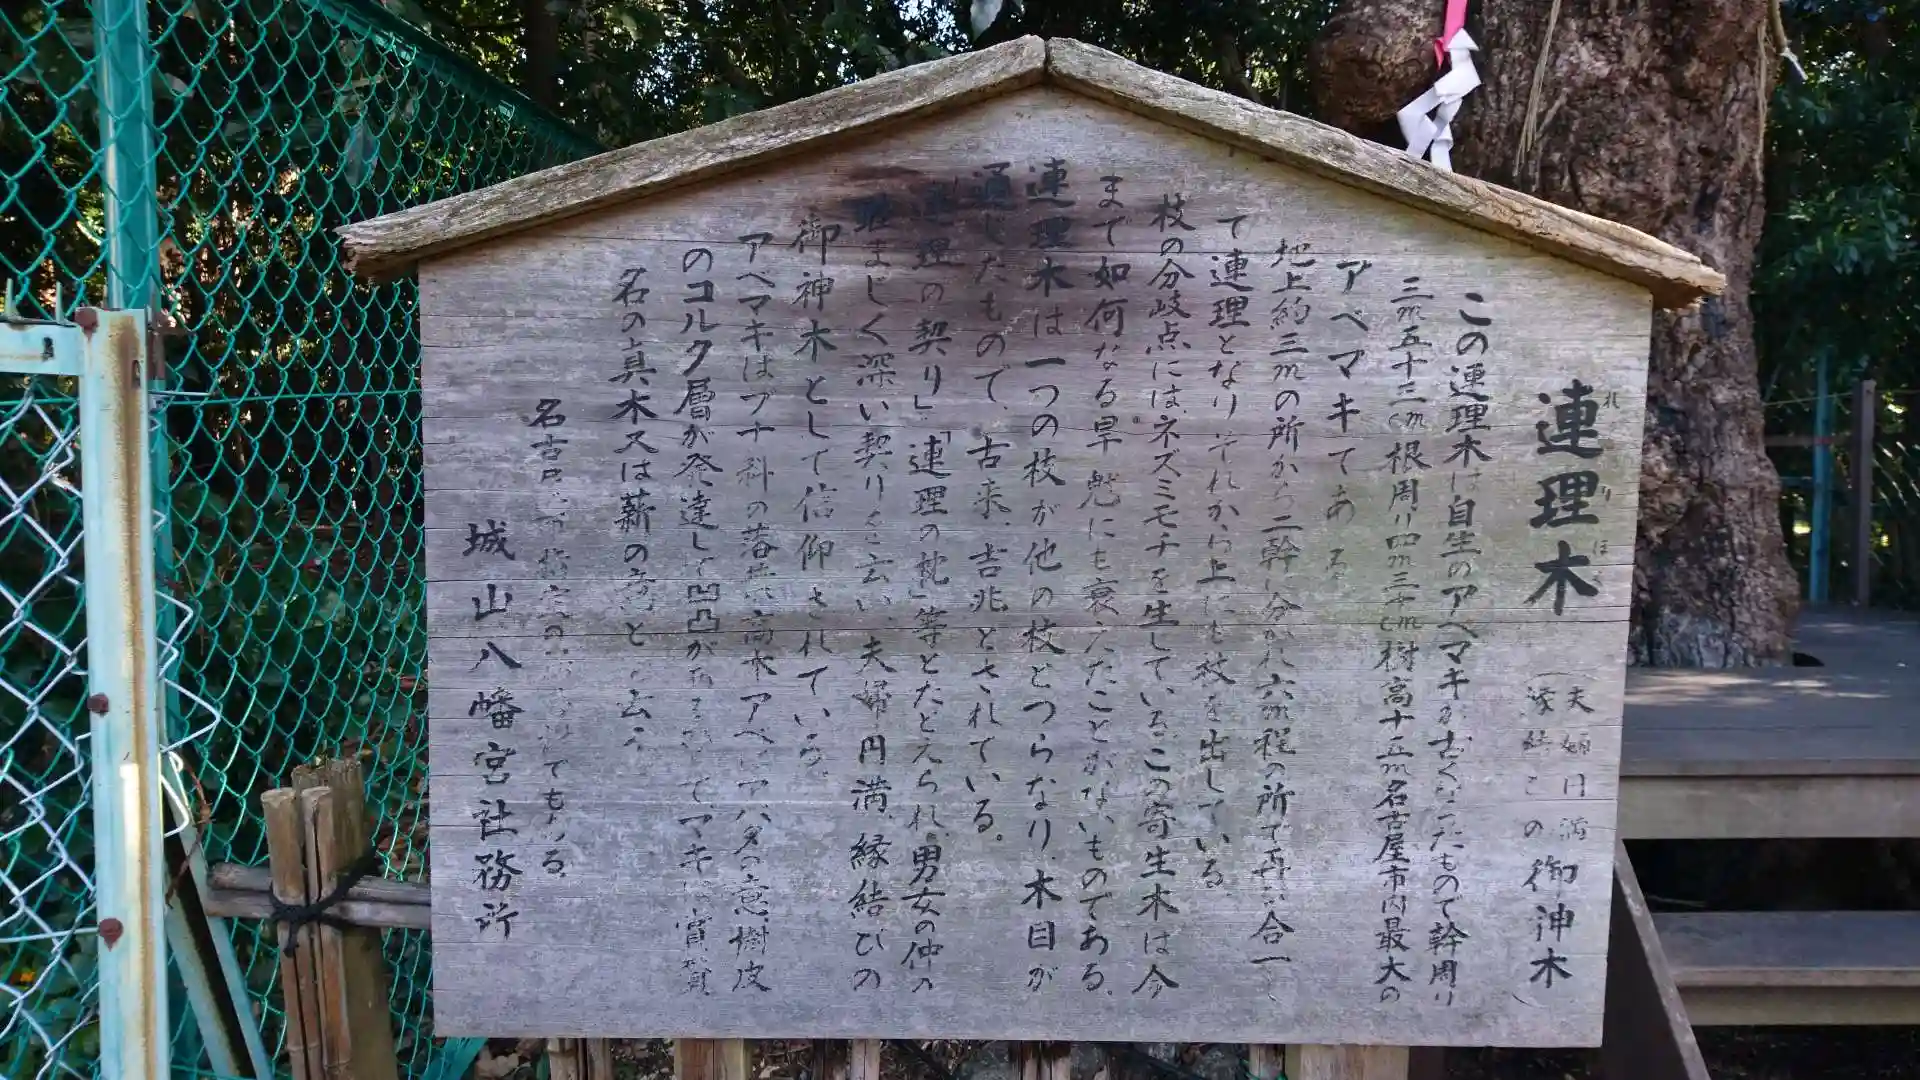 連理木
れ り ぼく
(夫婦円満
縁結びの
御神木
この連理木は自生のアベマキが古くなったもので幹周り
三m五十三cm根周り四m三十cm樹高十五m名古屋市内最大の
アベマキである
地上約三mの所から二幹に分かれ六m程の所で再び合一し
て連理となりそれから上にも枝を出している。
枝の分岐点には、ネズミモチを生している。この寄生木は今
まで如何なる旱魃にも衰えたことがないものである。
連理木は一つの枝が他の枝とつらなり、木目が
通じたもので、古来、吉兆とされている。
「連理の契り」「連理の枕」等とたとえられ、男女の仲の
睦まじく深い契りを云い、夫婦円満、縁結びの
御神木として信仰されている。
アベマキはブナ科の落葉高木アベはアバタの意、樹皮
のコルク層が発達して凹凸があるので、マキは賞賛
名の真木又は薪の意と云う
名古屋市指定の でもある。
城山八幡宮社務所